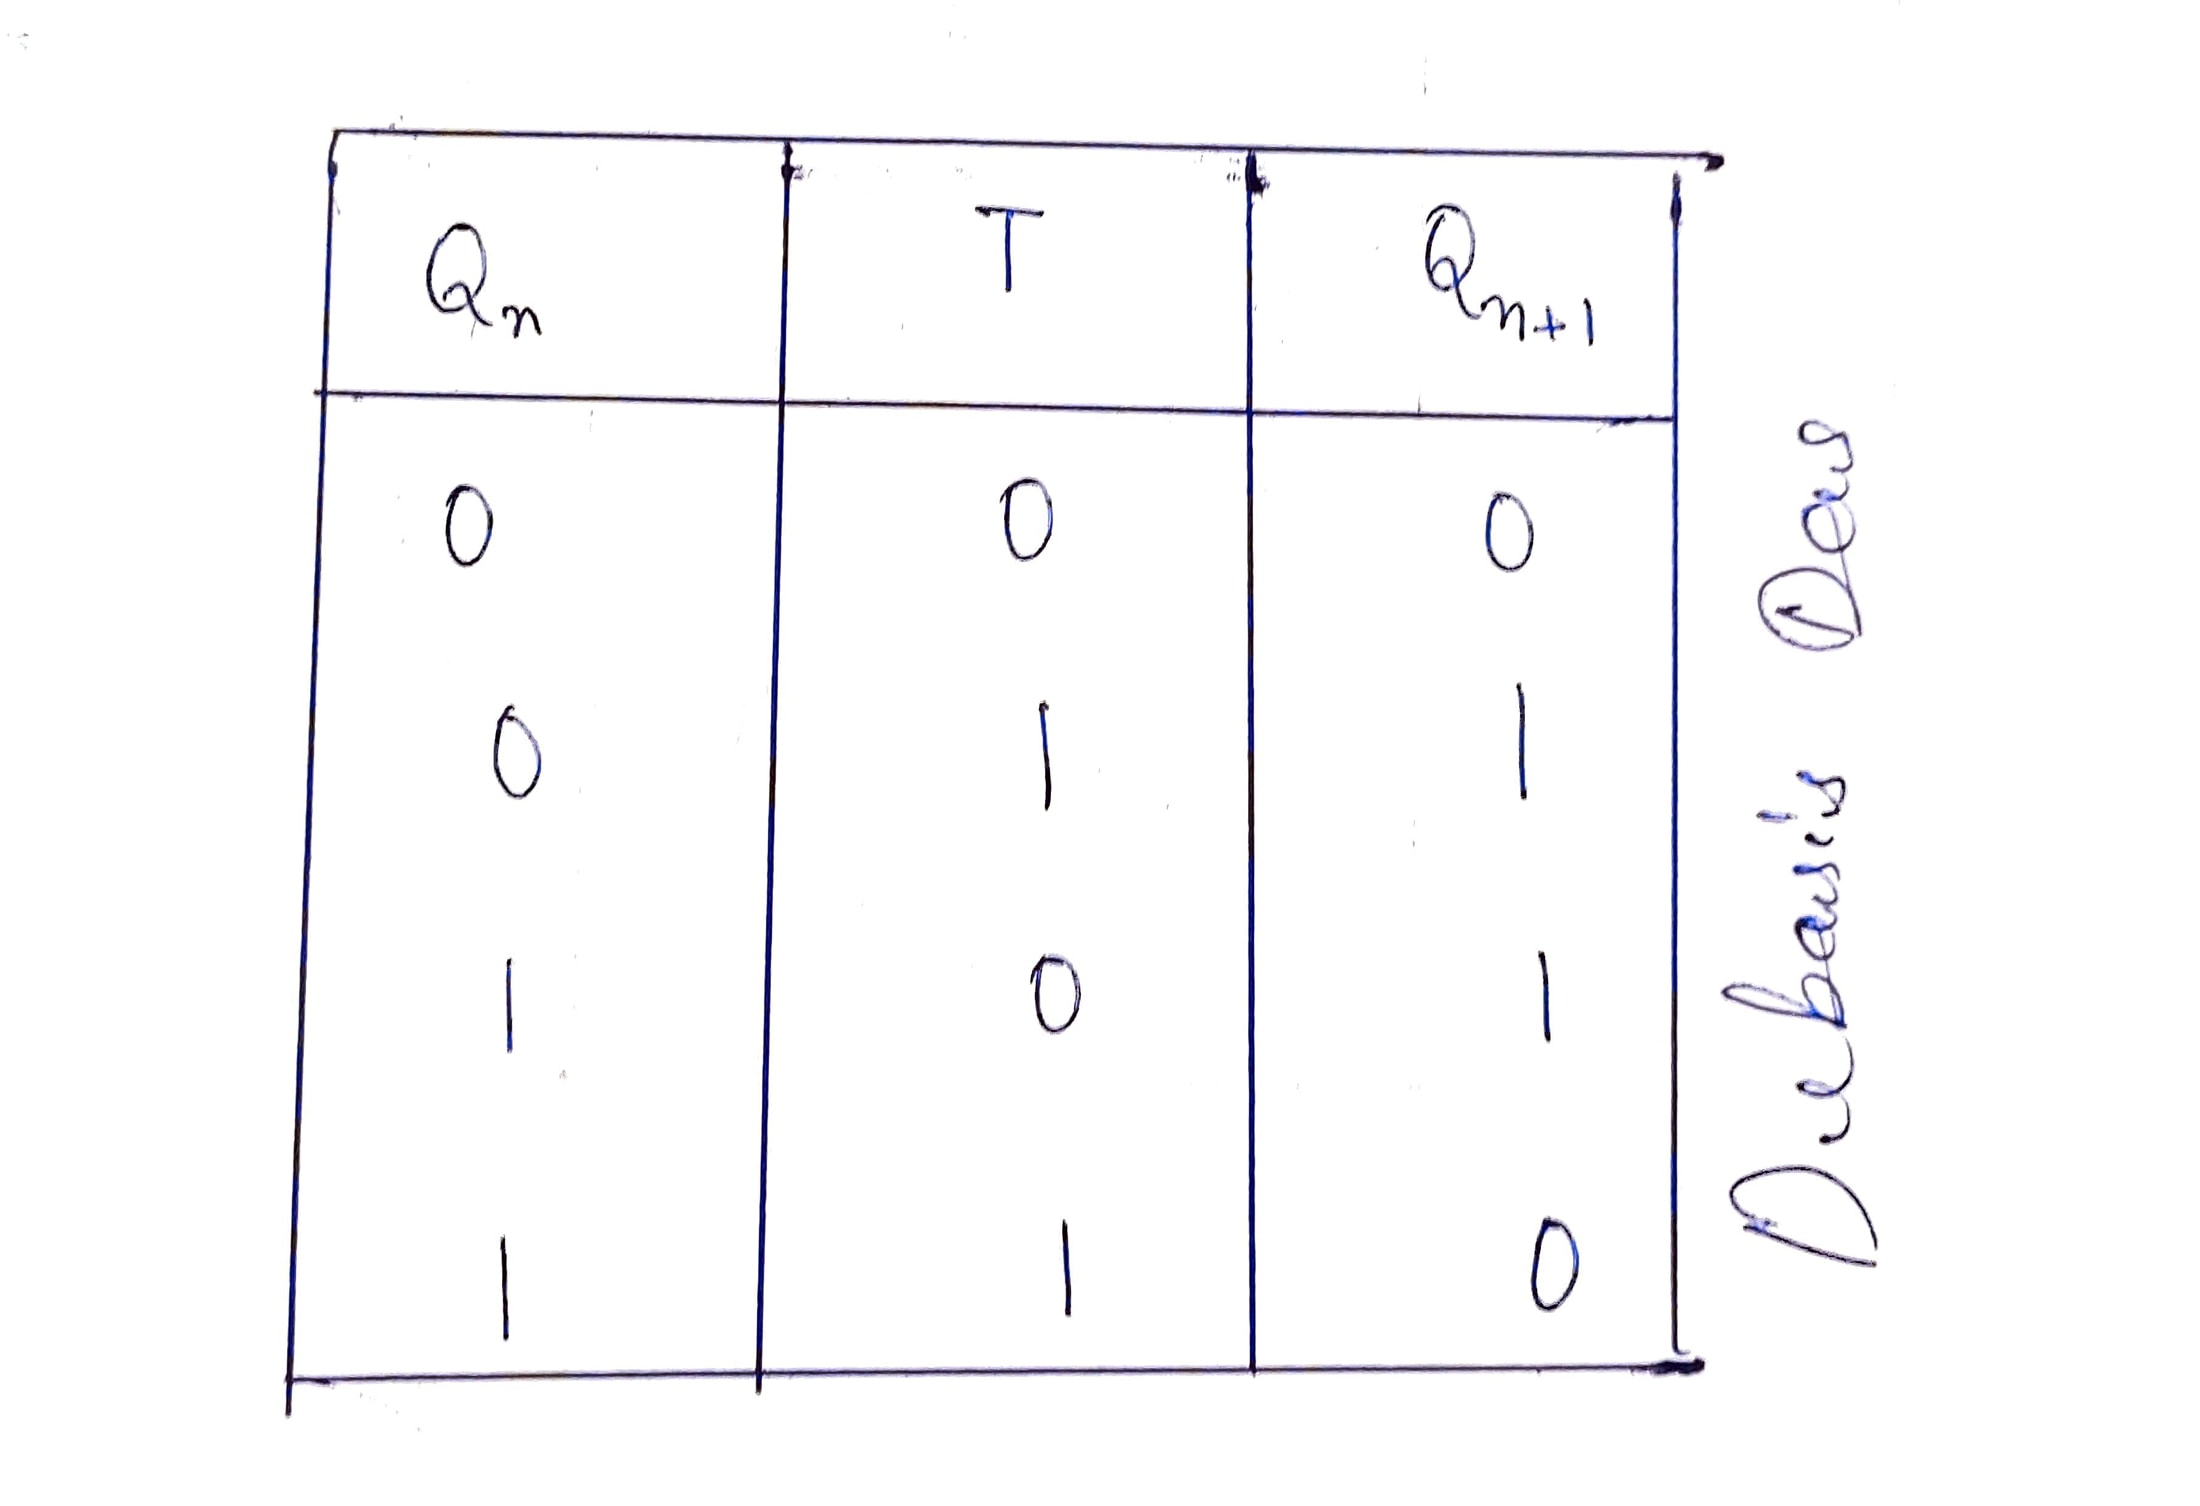 Qn T Qn+1
0 0 0
0 1 1
1 0 1
1 1 0
Debasis Das